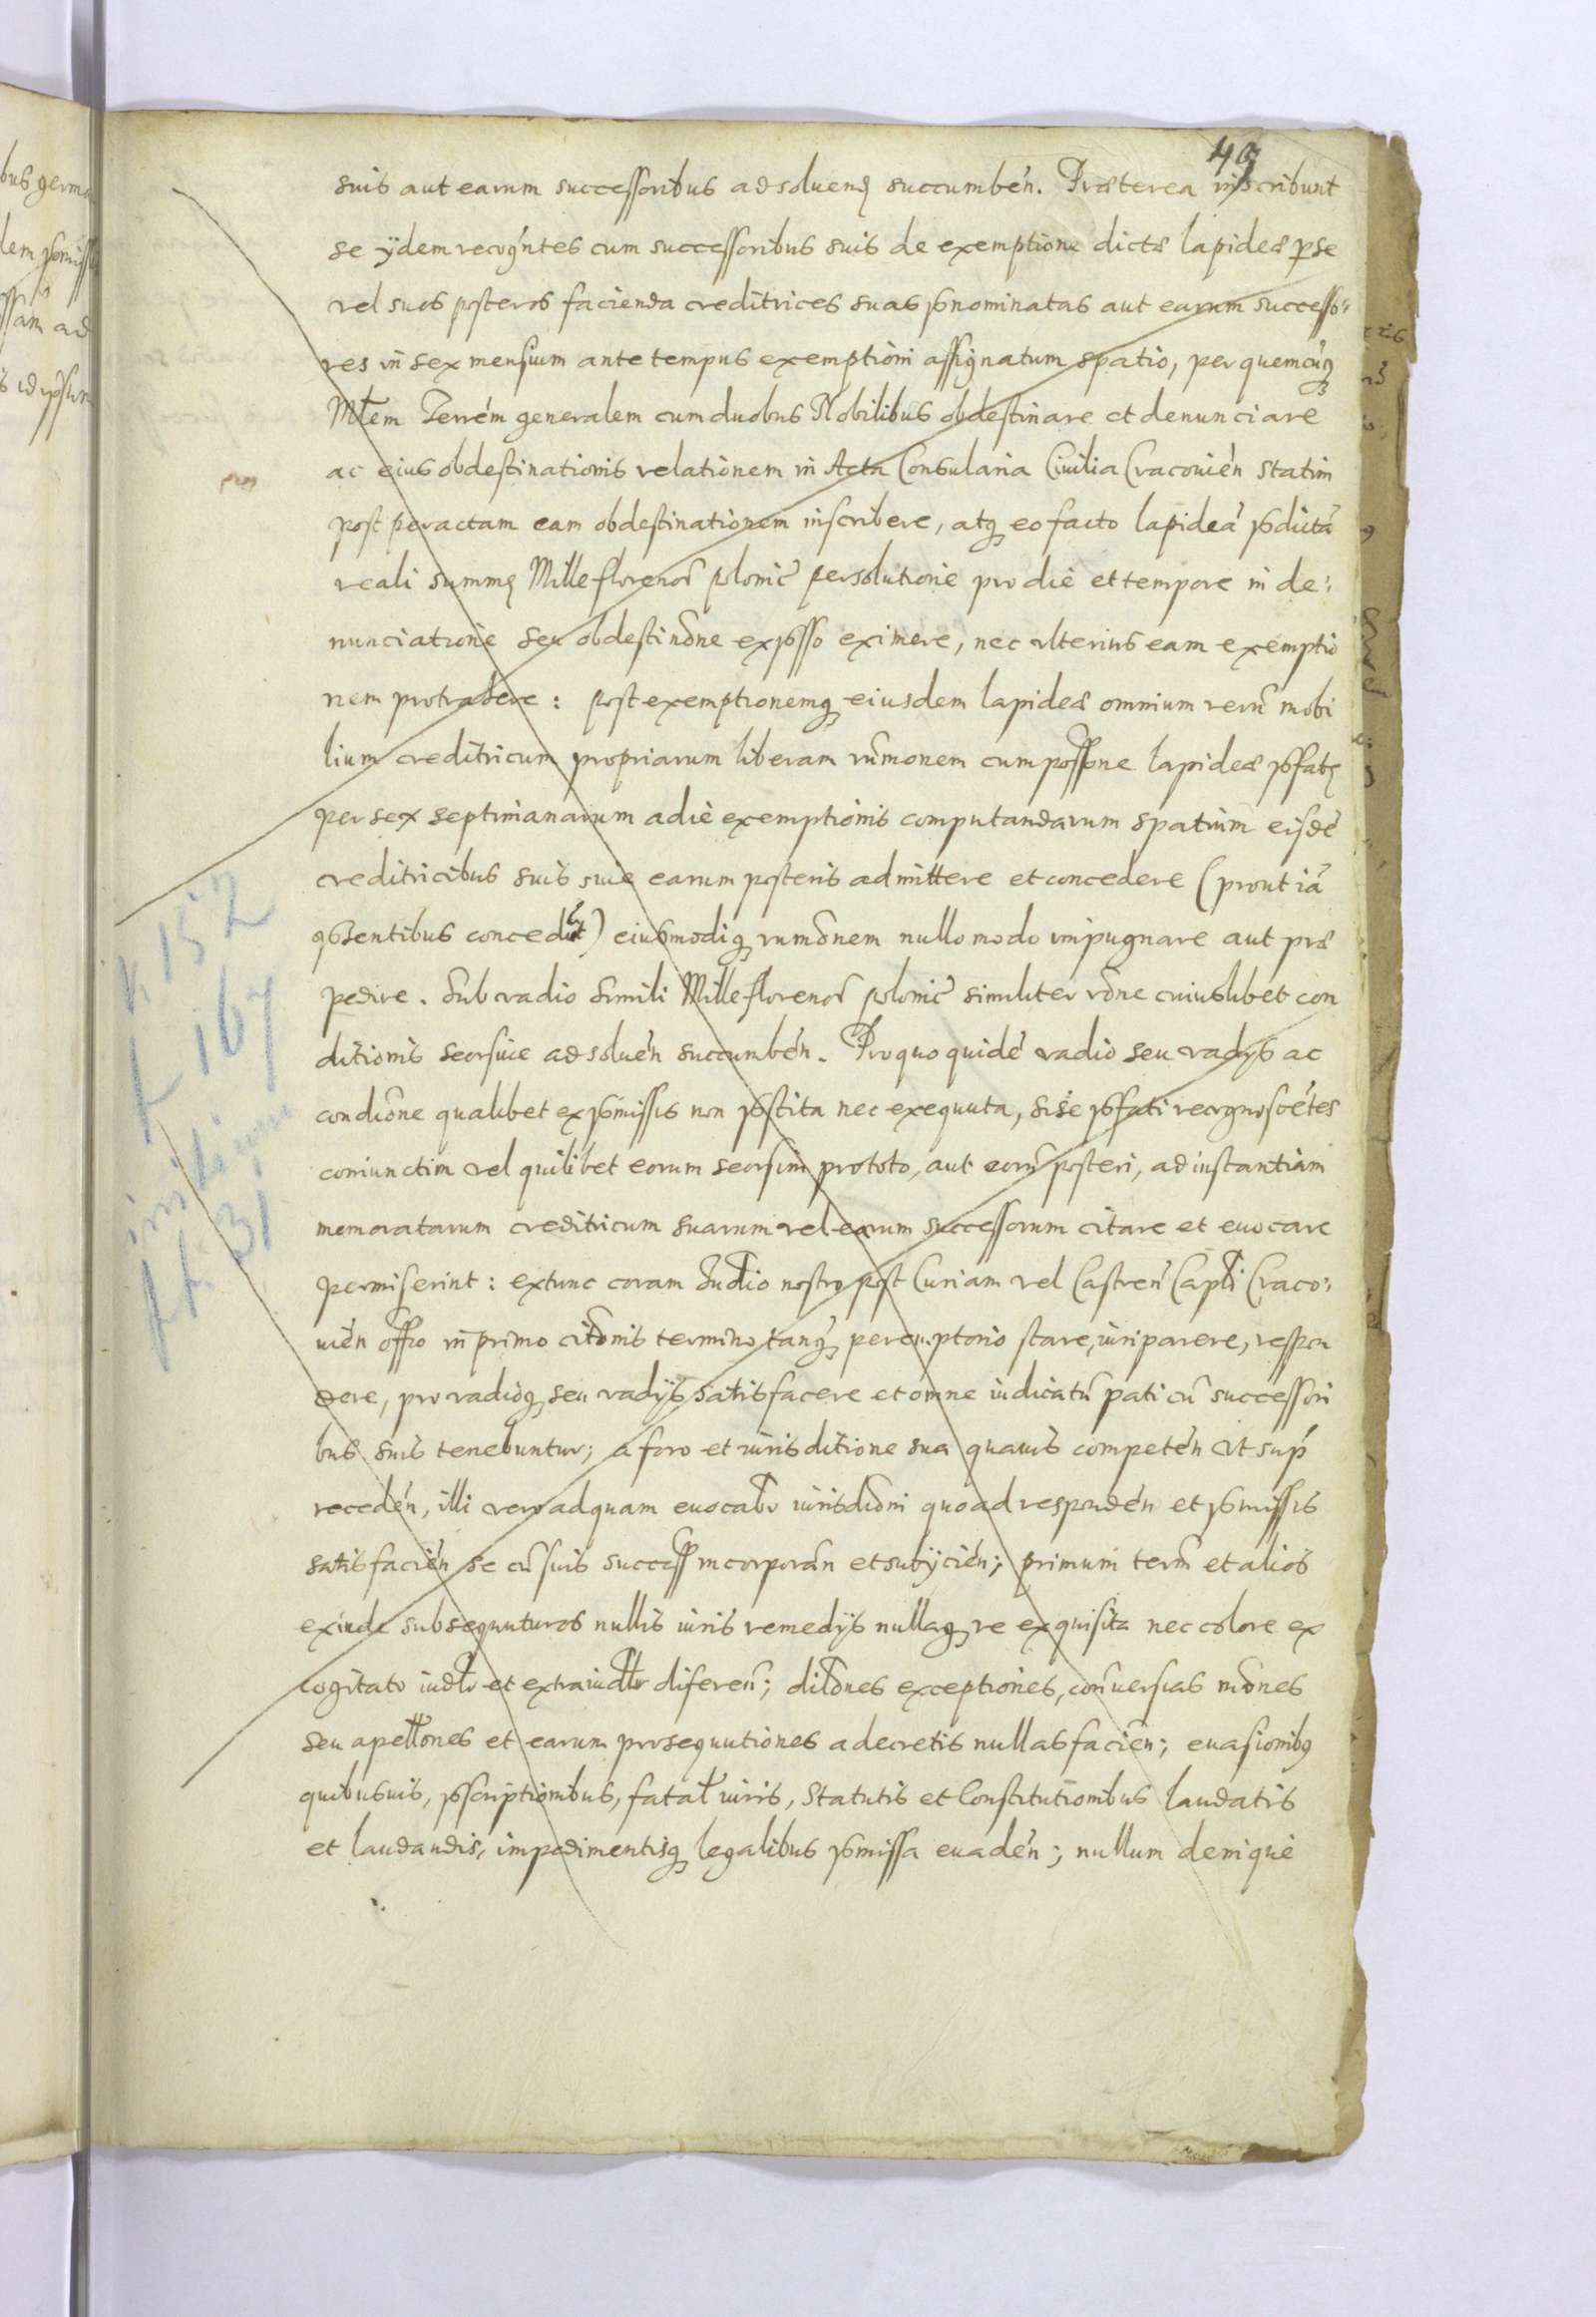 49
suis aut earum successoribus ad soluend succumbén. Præterea inscribunt
se ÿdem recogntes cum successoribus suis de exemptione dictæ lapideæ p se
vel suos posteros facienda creditrices suas pnominatas aut earum successo:
res in sex mensium ante tempus exemptioni assignatum spatio, per quemcunq
Mtem Terrém generalem cum duobus Nobilibus obdestinare et denunciare
ac eius obdestinationis relationem in Acta Consularia Ciuilia Cracouién statim
post peractam eam obdestinationem inscribere, atq eo facto lapideã pdictã
reali summę Mille florenor polonic persolutione pro die et tempore in de:
nunciatione seu obdestinõne expsso eximere, nec vlterius eam exemptio
nem protrahere: post exemptionemq eiusdem lapideæ omnium rerũ mobi
lium creditricum propriarum liberam rũmonem cum possone lapideæ pfatę
per sex septimanarum a die exemptionis computandarum spatium eisdẽ
creditricibus suis siue earum posteris admittere et concedere (prout iã
psentibus concedũt) eiusmodiq rumõnem nullo modo impugnare aut præ
pedire. Sub vadio simili Mille florenor polonic similiter rõne cuiuslibet con
ditionis seorsiue ad soluén succumbén. Pro quo quidé vadio seu vadÿs ac
condiõne qualibet ex pmissis non pstita nec exequuta, si sẽ pfati recognoscẽtes
coniunctim vel quilibet eorum seorsim pro toto, aut eorũ posteri, ad instantiam
memoratarum creditricum suarum vel earum successorum citare et euocare
permiserint: extunc coram Iudio nostro post Curiam vel Castren Capli Craco:
uién offio in primo citõnis termino tanq peremptorio stare, iuri parere, respon
dere, pro vadioq seu vadÿs satisfacere et omne iudicatũ pati cũ successori
bus suis tenebuntur; a foro et iurisditione sua quauis competén vt sup
recedén, illi vero ad quam euocabr iurisdioni quoad respondén et pmissis
satisfacién se cũ suis success incorporãn et subÿcién; primum term et alios
exinde subsequuturos nullis iuris remedÿs nullaq re exquisita nec colore ex
cogitato iudlr et extraiudlr diferen; dilõnes exceptiones, conuersias mõnes
seu apellones et earum prosequutiones a decretis nullas facién; euasionibq
quibusuis, pscriptionibus, fatal iuris, Statutis et Constitutionibus laudatis
et laudandis, impedimentisq legalibus pmissa euadén; nullum denique
k 152
k 167